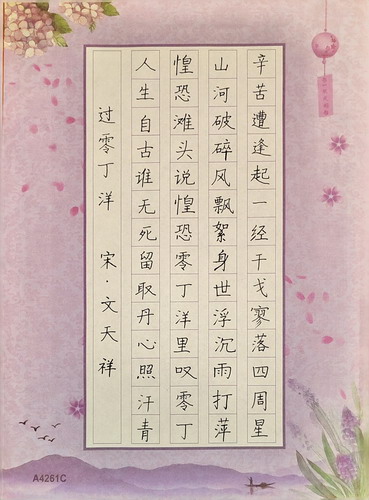 辛苦遭逢起一经干戈寥落四周星
山河破碎风飘絮身世浮沉雨打萍
惶恐滩头说惶恐零丁洋里叹零丁
人生自古谁无死留取丹心照汗青
过零丁洋 宋·文天祥
A4261C